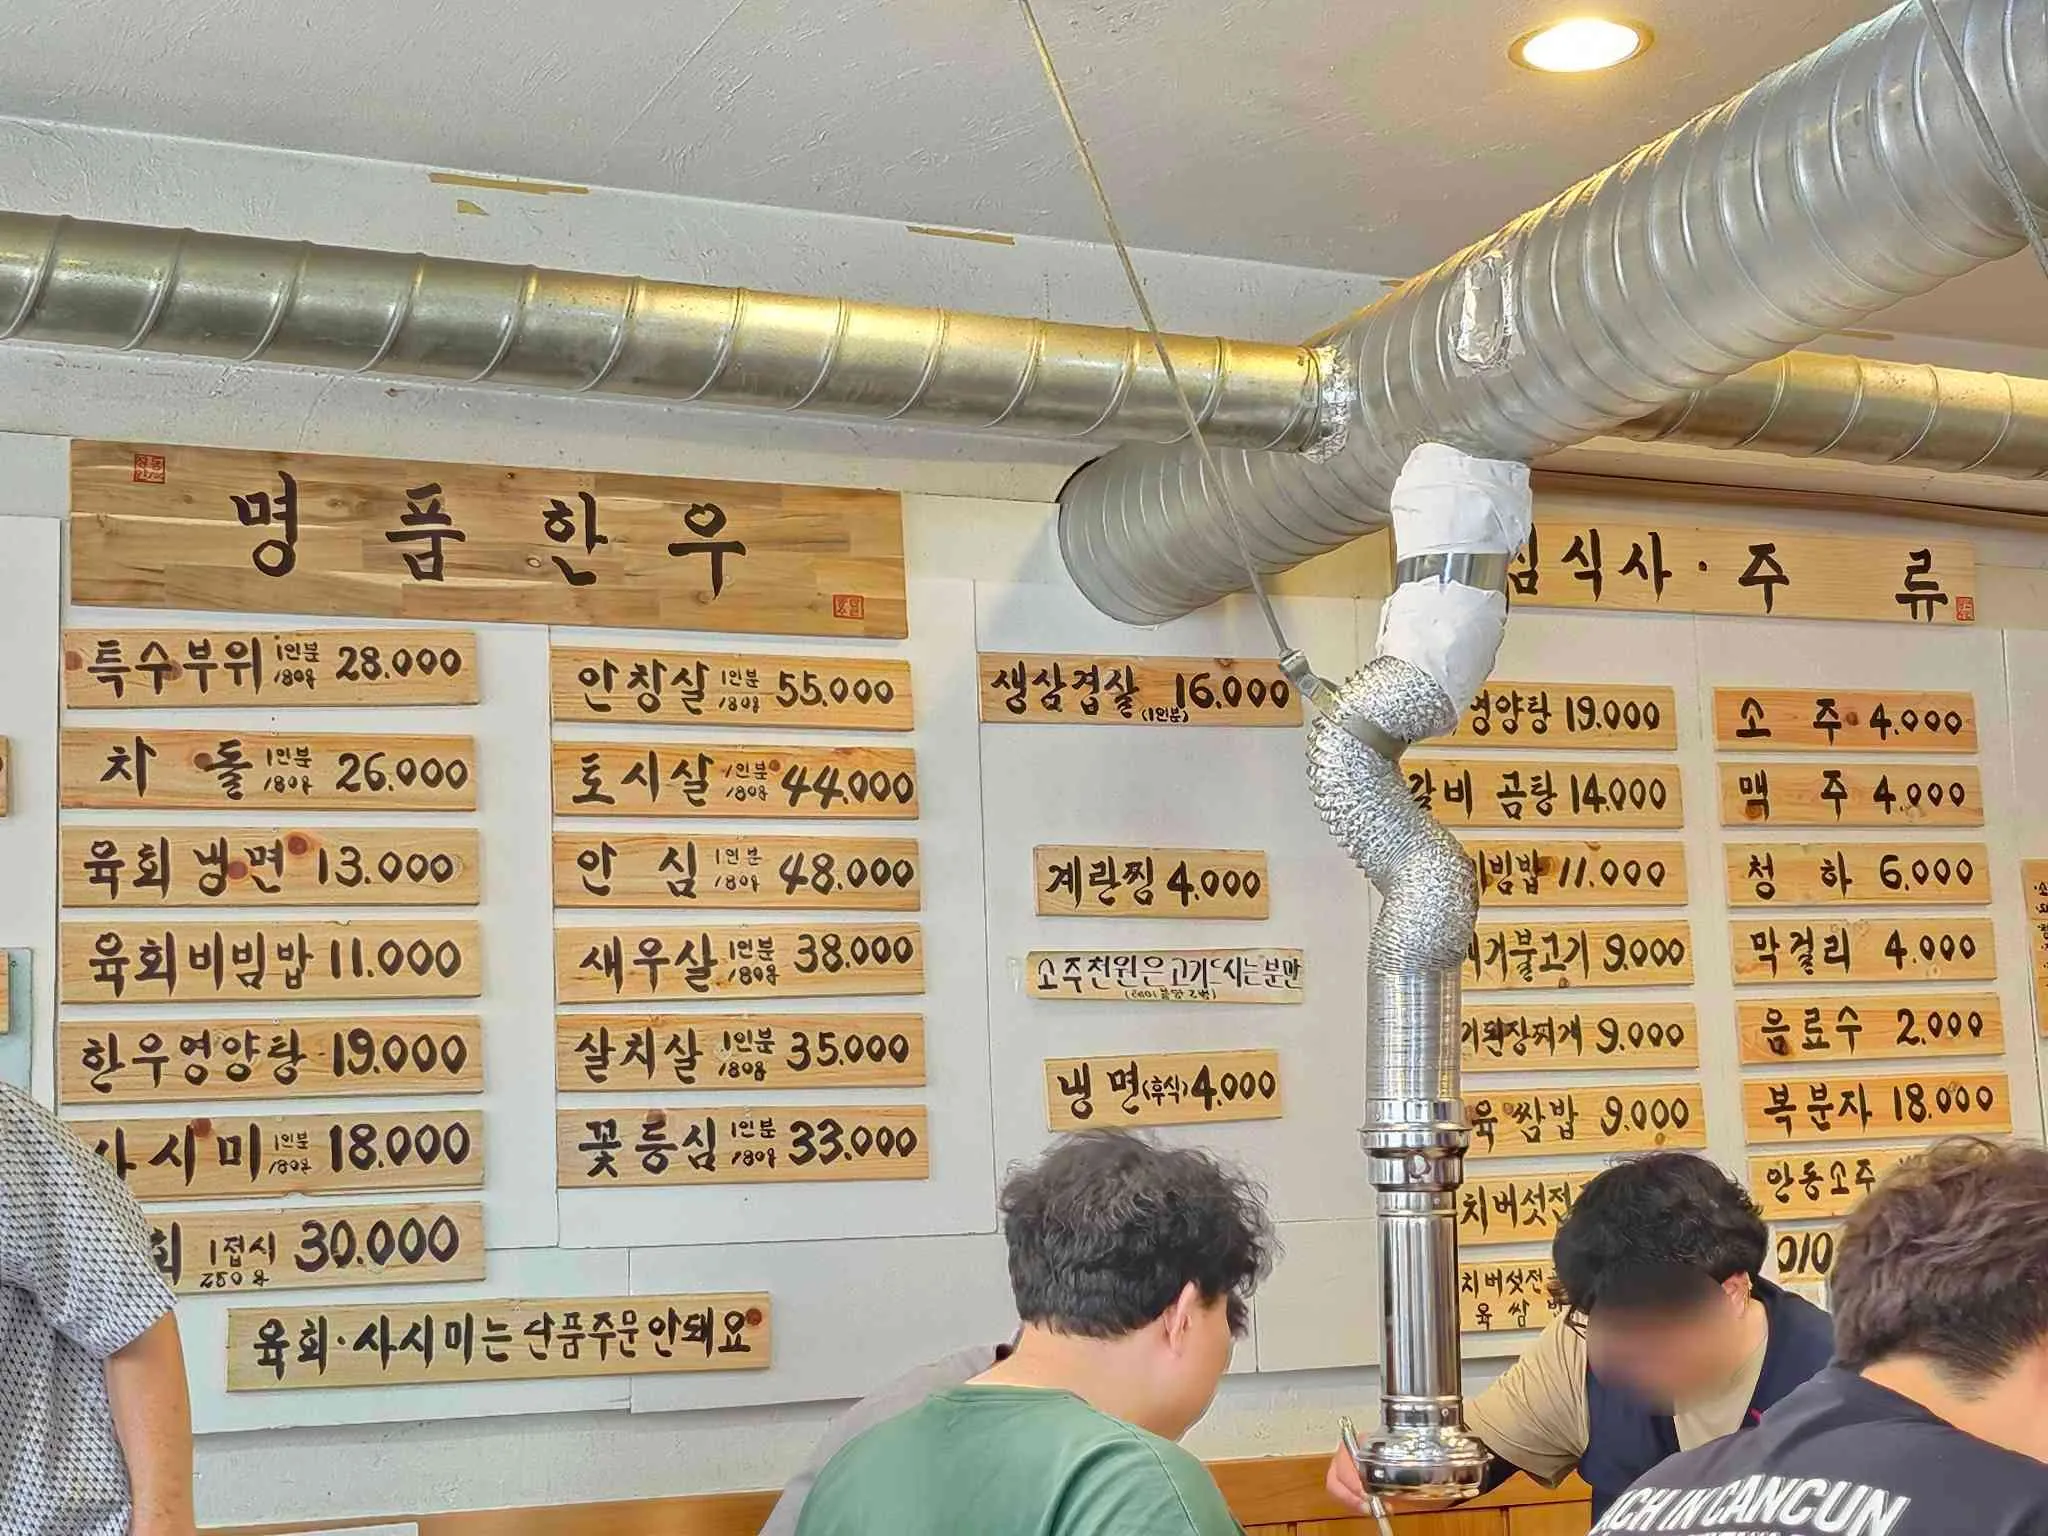 명품한우
특수부위 1인분 180g 28.000
차돌 1인분 180g 26.000
육회냉면 13.000
육회비빔밥 11.000
한우영양탕 19.000
사시미 1인분 180g 18.000
회 1접시 250g 30.000
육회·사시미는 단품주문안돼요
안창살 1인분 180g 55.000
토시살 1인분 180g 44.000
안심 1인분 180g 48.000
새우살 1인분 180g 38.000
살치살 1인분 180g 35.000
꽃등심 1인분 180g 33.000
생삼겹살 (1인분) 16.000
계란찜 4.000
소주천원은고기드시는분만
냉면(후식) 4.000
심식사·주류
영양탕 19.000
갈비곰탕 14.000
비빔밥 11.000
불고기 9.000
된장찌개 9.000
육쌈밥 9.000
치버섯전
치버섯전
육쌈밥
소주 4.000
맥주 4.000
청하 6.000
막걸리 4.000
음료수 2.000
복분자 18.000
안동소주
010
IN CANCUN